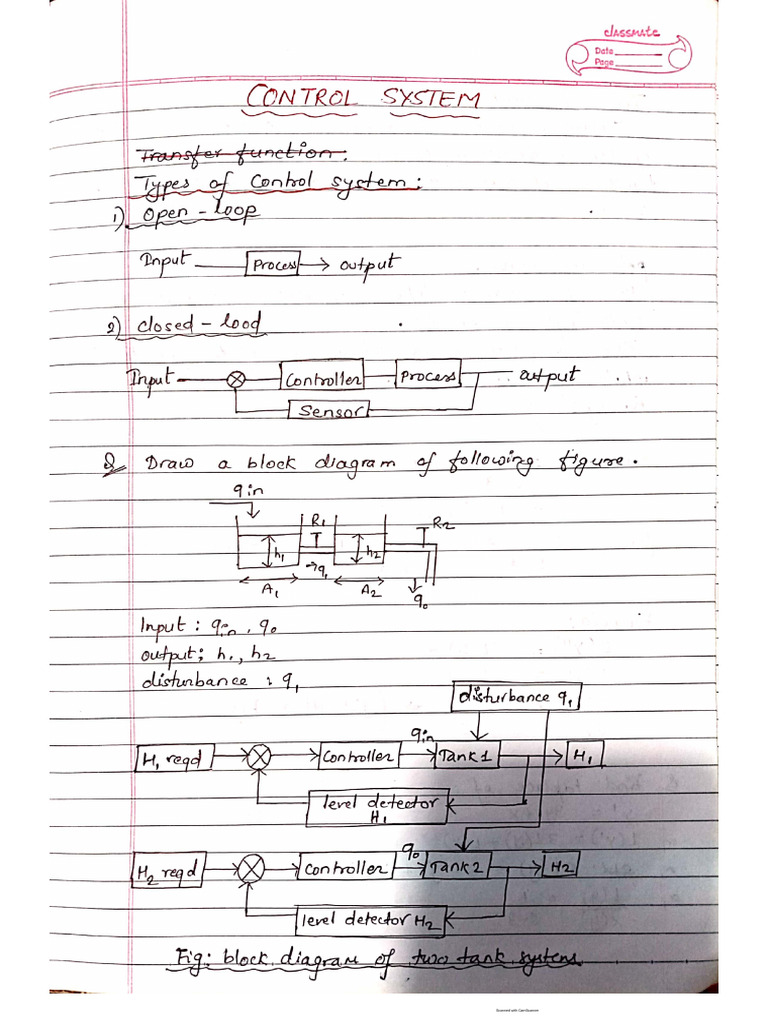 classmate
Date
Page
CONTROL SYSTEM
Transfer function:
Types of Control system:
1) Open-loop
Input Process output
2) closed-lood
Input Controller Process output
Sensor
Q Draw a block diagram of following figure.
qin
R1 R2
h1 h2
q1
A1 A2 q0
Input: qin, q0
output; h1, h2
disturbance : q1
disturbance q1
qin
H1 reqd Controller Tank1 H1
level detector
H1
q0
H2 reqd Controller Tank2 H2
level detector H2
Fig: block diagram of two tank systems
Scanned with CamScanner